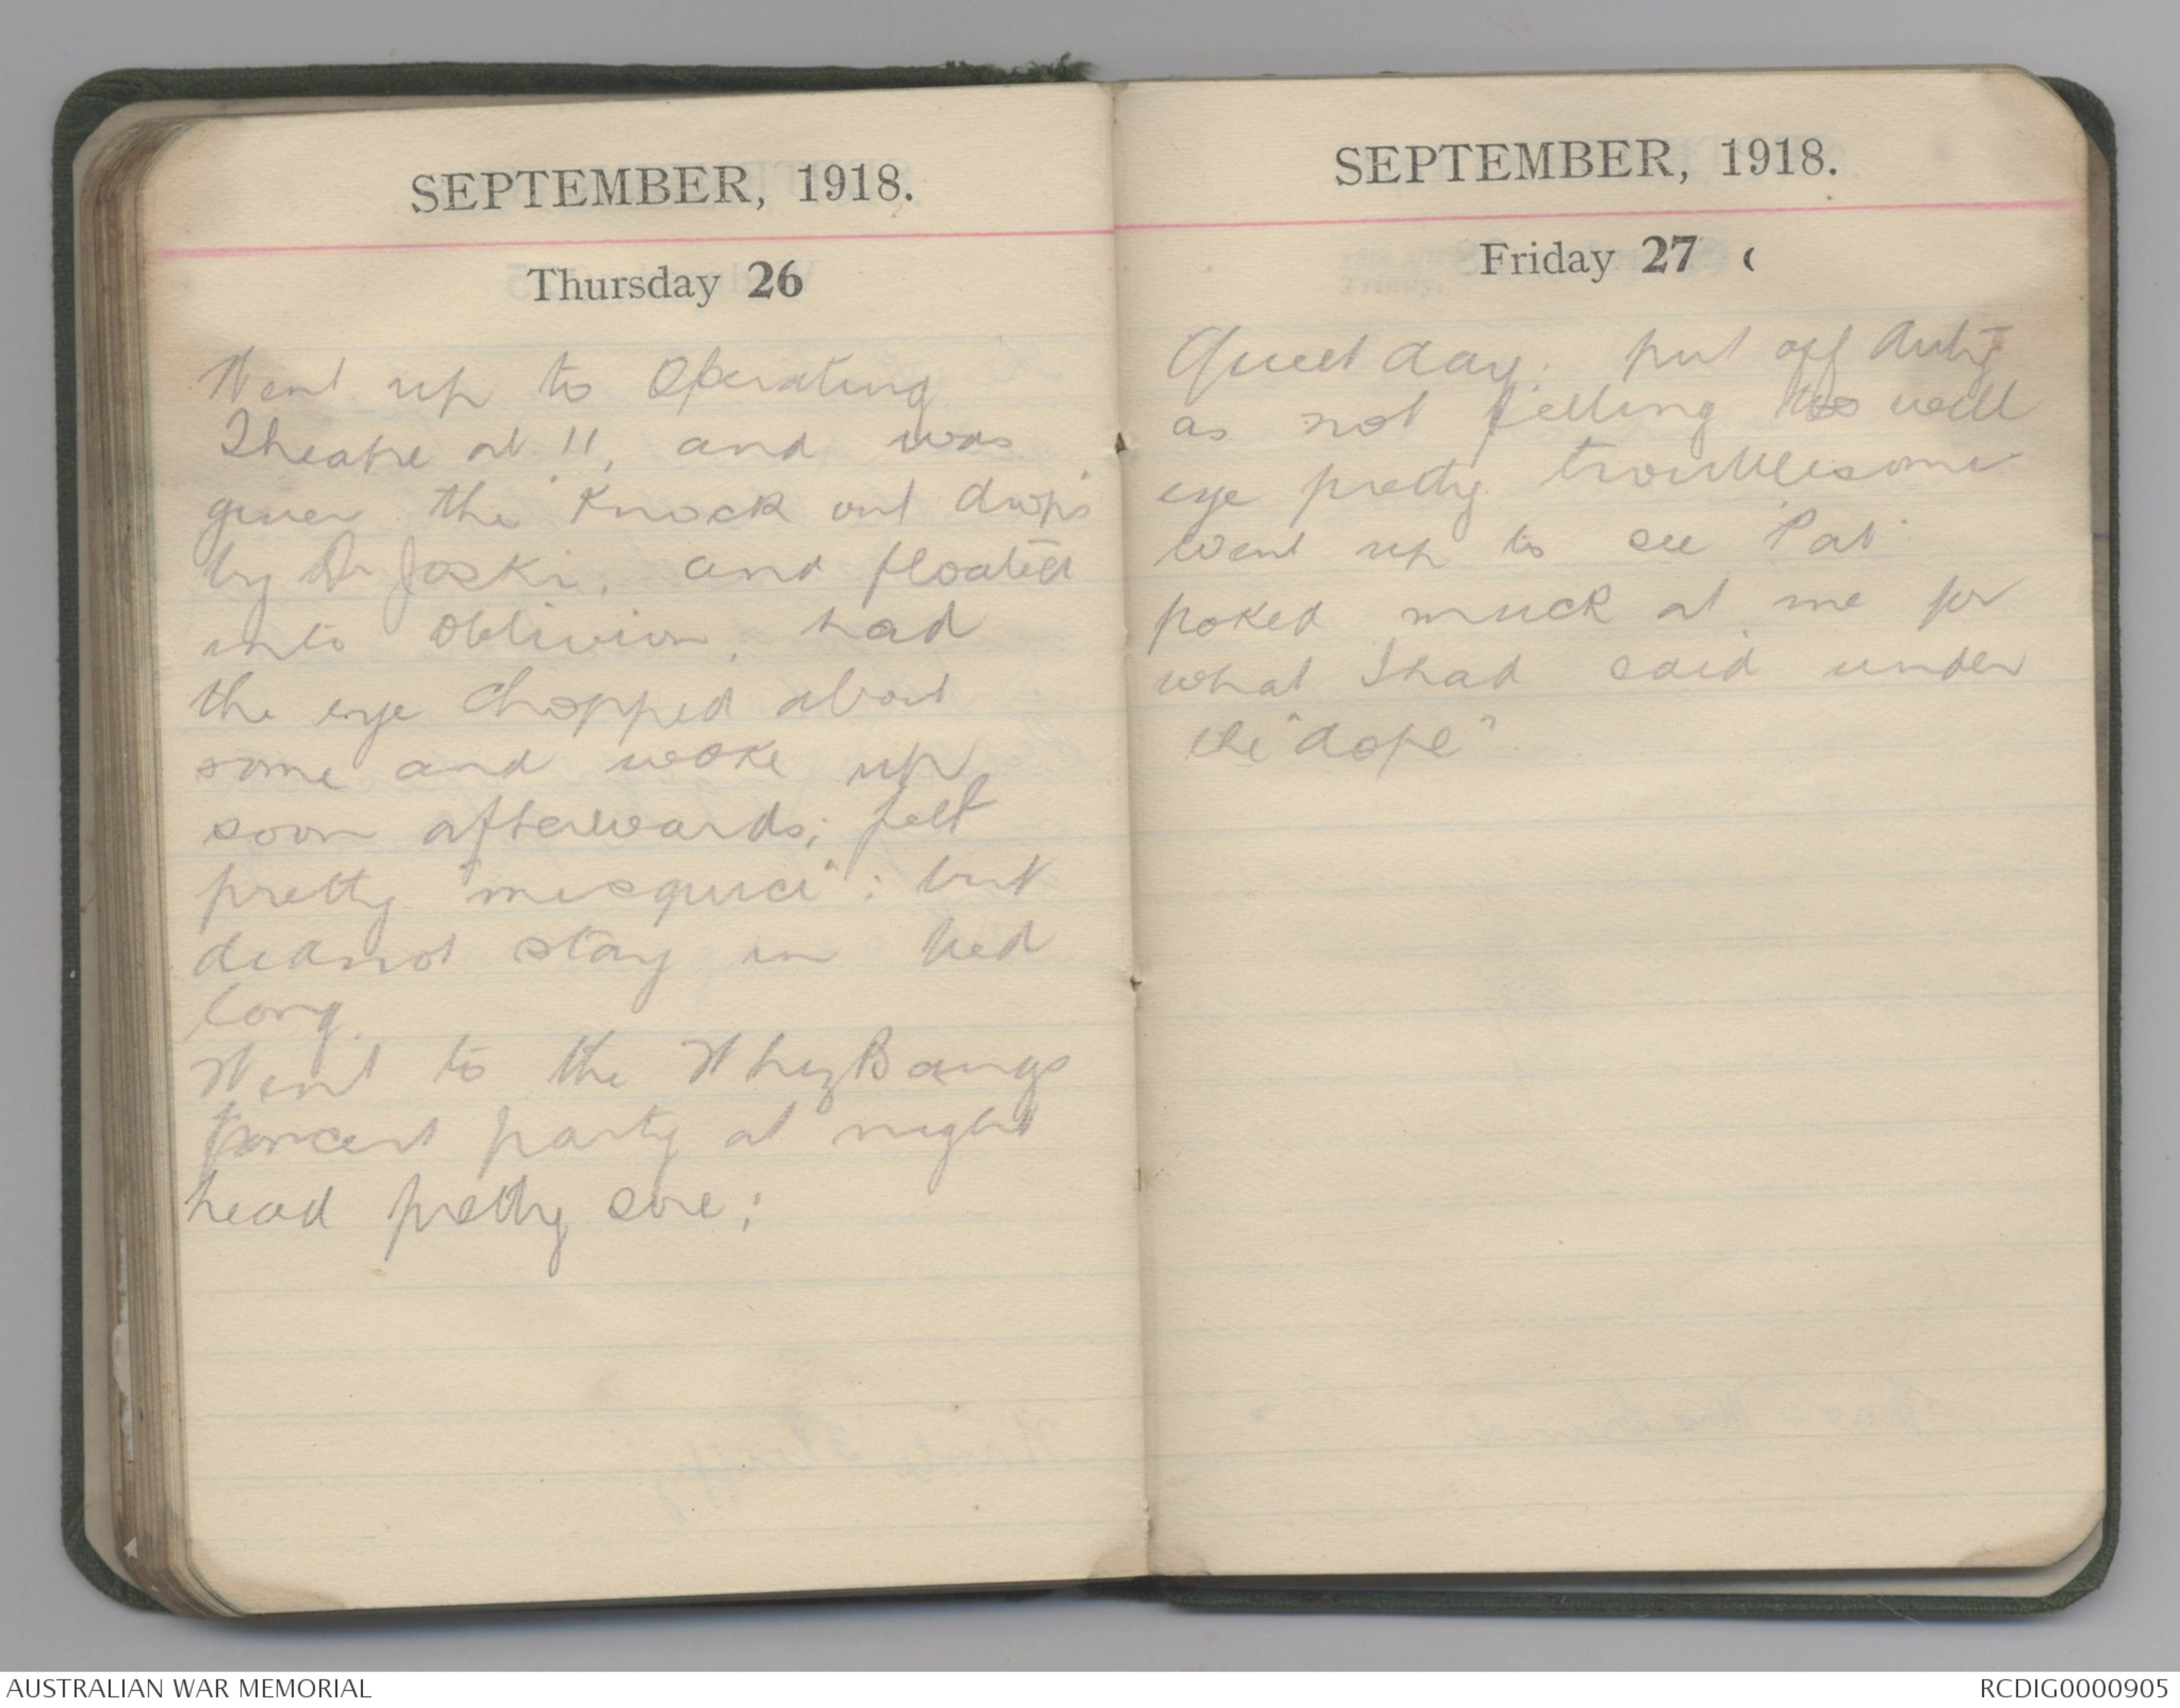 SEPTEMBER, 1918.
Thursday 26
Went up to Operating
Theatre at 11, and was
given the "Knock out drops"
by Dr Joski, and floated
into oblivion, had
the eye chopped about
some and woke up
soon afterwards; felt
pretty "mesquice": but
didnot stay in bed
long.
Went to the WhizBangs
Concert party at night
head pretty sore;
SEPTEMBER, 1918.
Friday 27
Quiet day. put off duty
as not felling too well
eye pretty troublesome
Went up to see "Pat"
poked muck at me for
what I had said under
the "dope"
AUSTRALIAN WAR MEMORIAL
RCDIG0000905